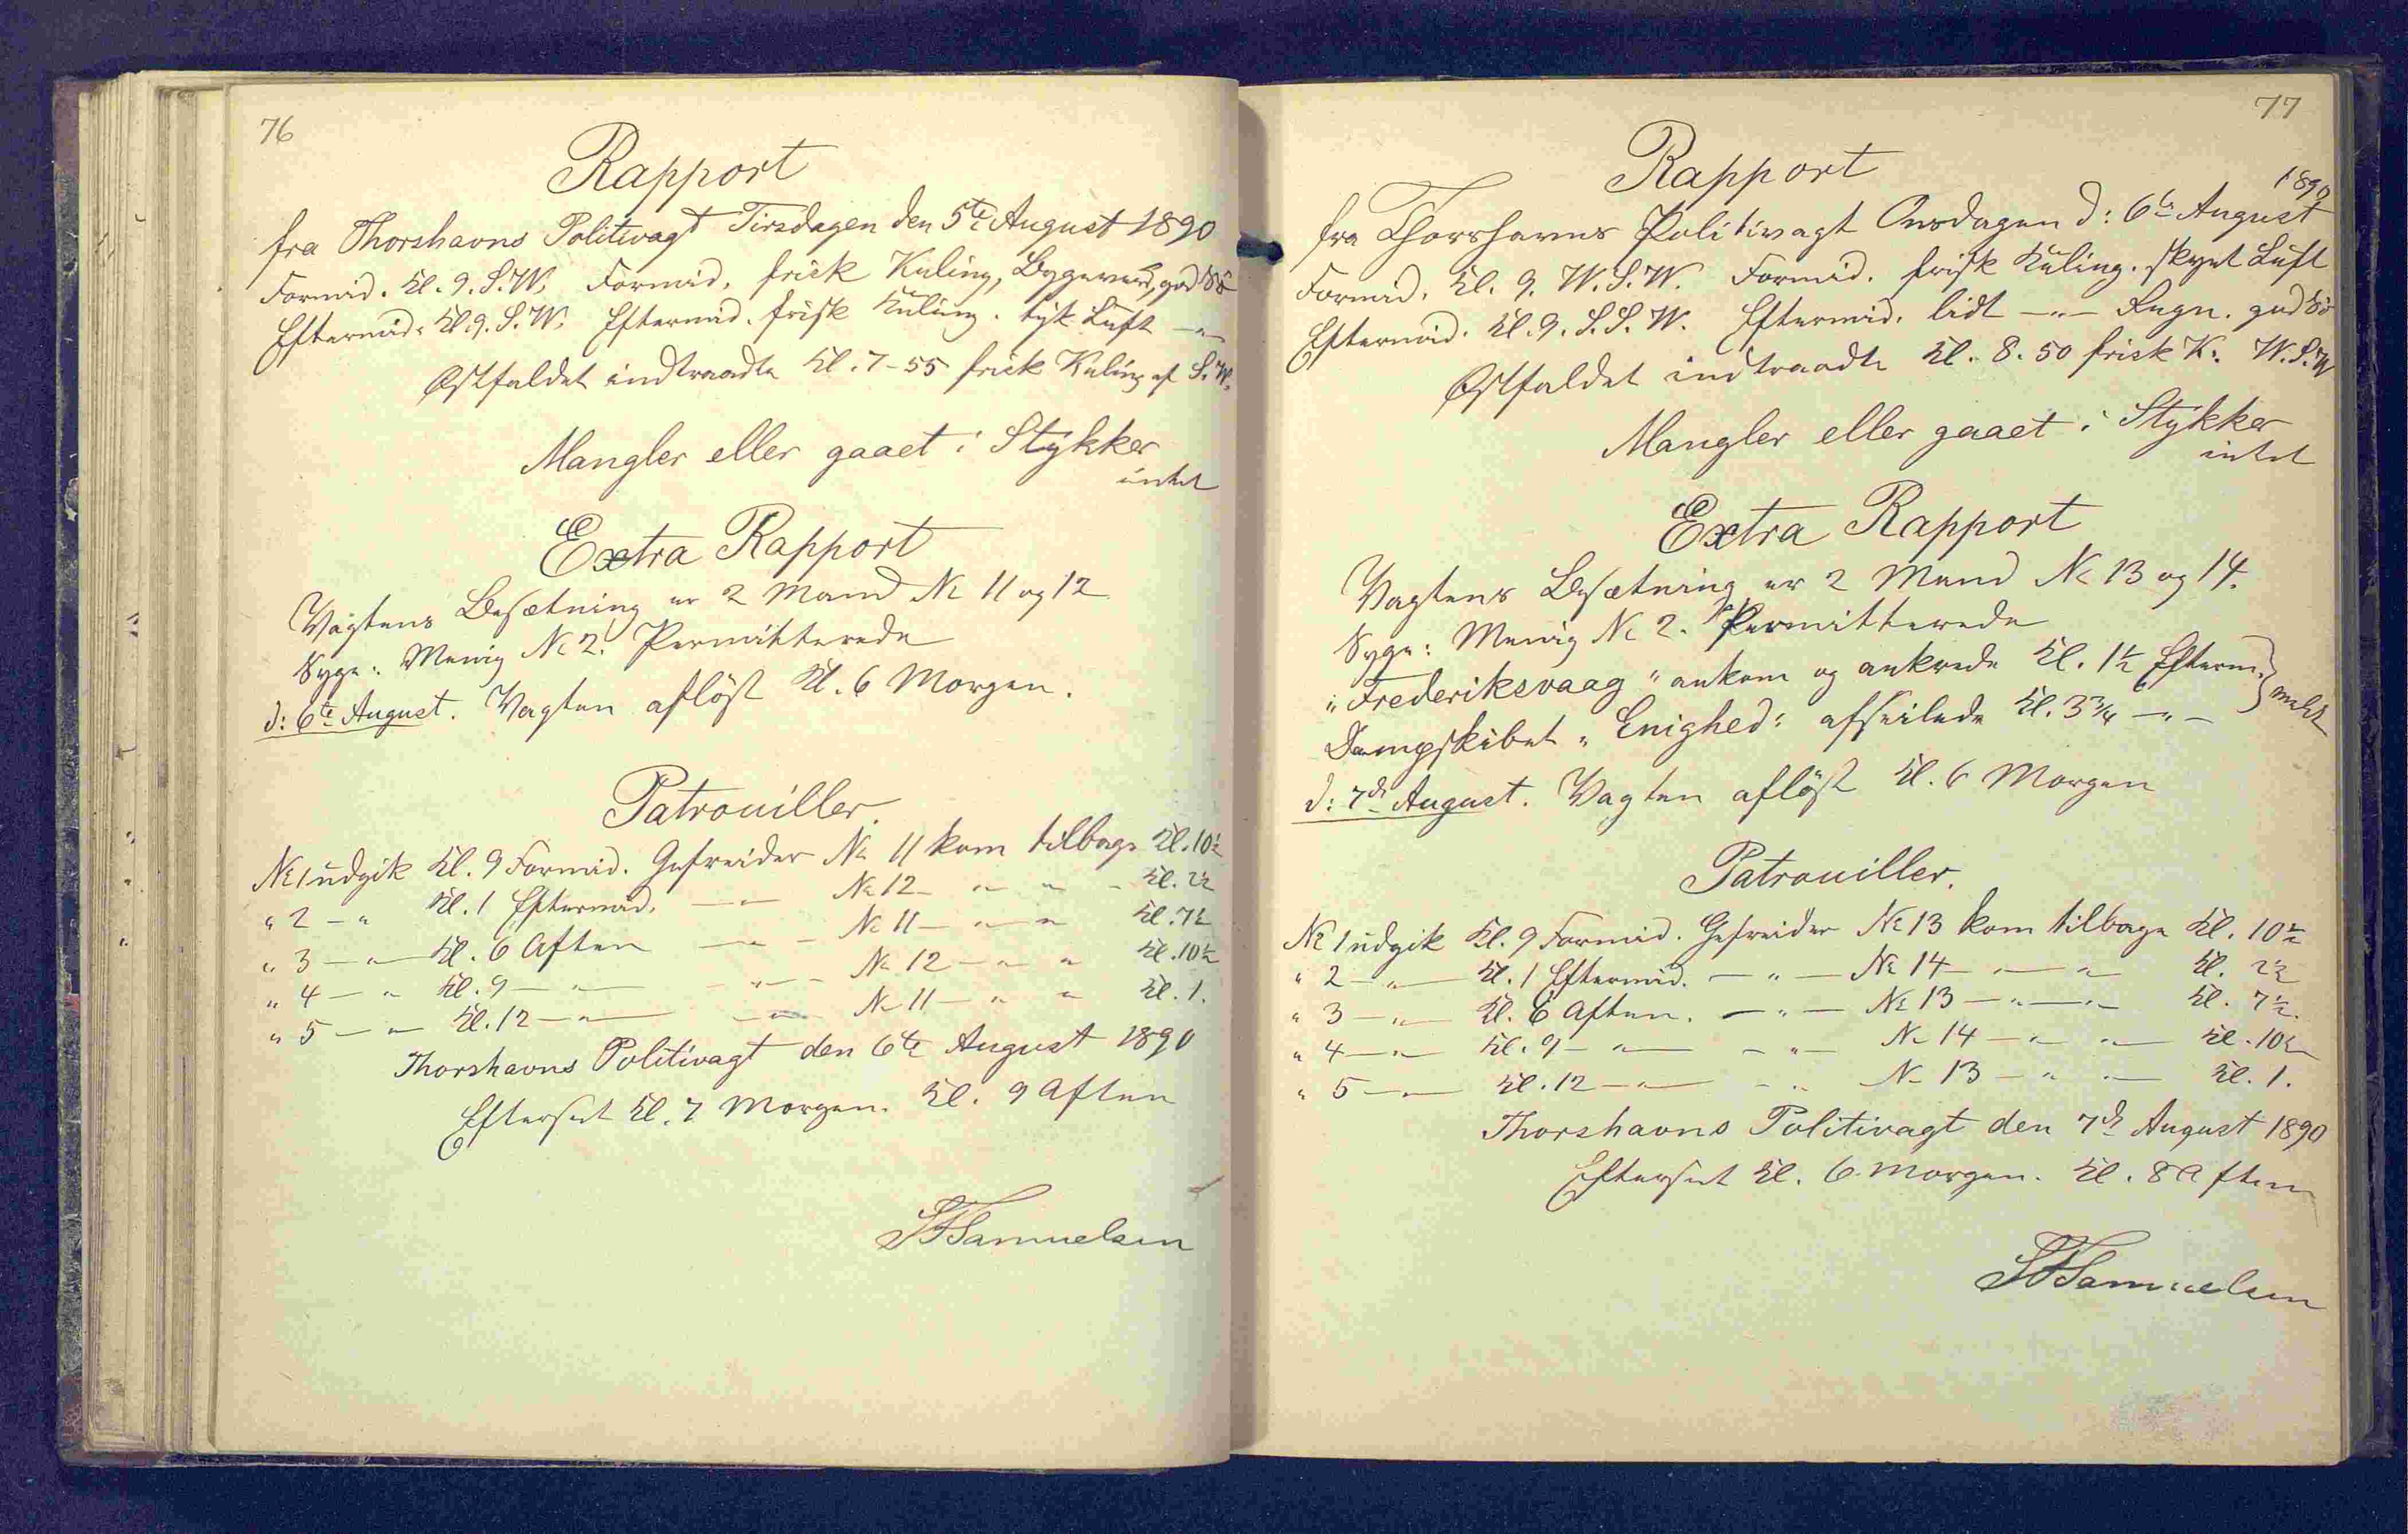 76
Rapport
fra Thorshavns Politivagt Tirsdagen den 5te August 1890
Formid. Kl. 9. S.W. Formid. frisk Kuling, Bygeveir, god Sö
Eftermid. Kl. 9. S.W. Eftermid. frisk Kuling. tyk Luft -"-
Østfaldet indtraadte Kl. 7-55 frisk Kuling af S.W.
Mangler eller gaaet i Stykker
intet
Extra Rapport
Vagtens Besætning er 2 Mand No 11 og 12
Syge: Menig No 2. Permitterede
d: 6te August. Vagten aflöst Kl. 6 Morgen.
Patrouiller.
No 1 udgik Kl. 9 Formid. Gefreider No 11 kom tilbage Kl. 10½
" 2 - " Kl. 1 Eftermid. -"- No 12 - " - " - Kl. 2½
" 3 - " - Kl. 6 Aften - " - No 11 - " - " Kl. 7½
" 4 - " Kl. 9 - " - - " - No 12 - " - " Kl. 10½
" 5 - " - Kl. 12 - " - - " - No 11 - " - " Kl. 1.
Thorshavns Politivagt den 6te August 1890
Efterset Kl. 7 Morgen. Kl. 9 Aften
Samuelsen
77
Rapport
1890
fra Thorshavns Politivagt Onsdagen d: 6te August
Formid. Kl. 9. W.S.W. Formid. frisk Kuling. skyet Luft
Eftermid. Kl. 9. S.S.W. Eftermid. lidt -"- Regn. god Sö
Østfaldet indtraadte Kl. 8.50 frisk K. W.S.W
Mangler eller gaaet i Stykker
intet
Extra Rapport
Vagtens Besætning er 2 Mand No 13 og 14.
Syge: Menig No 2. Permitterede
"Frederiksvaag" ankom og ankrede Kl. 1½ Efterm. } meldt
Dampskibet "Enighed" afseilede Kl. 3¾ -"-
d: 7de August. Vagten aflöst Kl. 6 Morgen
Patrouiller.
No 1 udgik Kl. 9 Formid. Gefreider No 13 kom tilbage Kl. 10½
" 2 - " - Kl. 1 Eftermid. - " - No 14 - " - " Kl. 2½
" 3 - " - Kl. 6 Aften. - " - No 13 - " - " - Kl. 7½.
" 4 - " - Kl. 9 - " - - " - No 14 - " - " - Kl. 10½
" 5 - " - Kl. 12 - " - - " No 13 - " - " - Kl. 1.
Thorshavns Politivagt den 7de August 1890
Efterset Kl. 6 Morgen. Kl. 8 Aften
Samuelsen